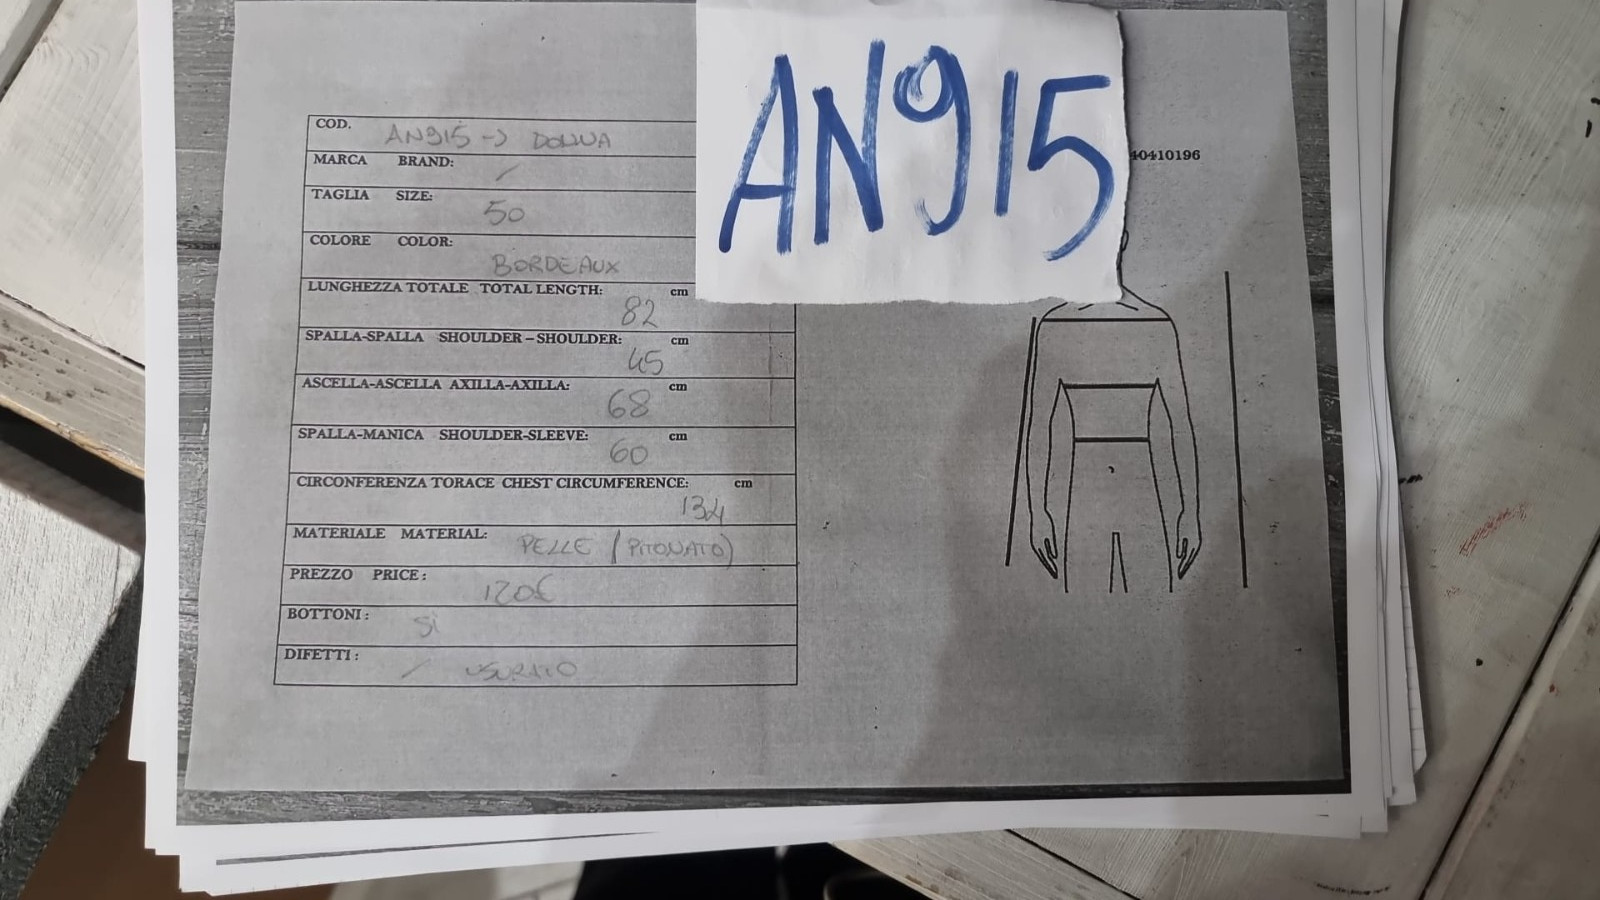 AN915
40410196
COD. AN915 -> DONNA
MARCA BRAND: /
TAGLIA SIZE: 50
COLORE COLOR: BORDEAUX
LUNGHEZZA TOTALE TOTAL LENGTH: 82 cm
SPALLA-SPALLA SHOULDER – SHOULDER: 45 cm
ASCELLA-ASCELLA AXILLA-AXILLA: 68 cm
SPALLA-MANICA SHOULDER-SLEEVE: 60 cm
CIRCONFERENZA TORACE CHEST CIRCUMFERENCE: 134 cm
MATERIALE MATERIAL: PELLE (PITONATO)
PREZZO PRICE: 120€
BOTTONI: Sì
DIFETTI: / USURATO